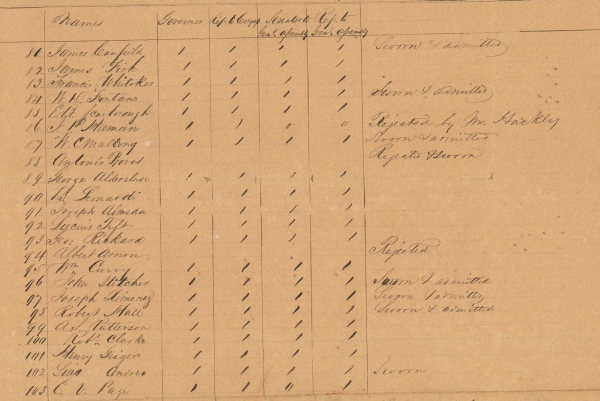 Names Governor Rep. to Congs Senator to Genl assembly Rep. to Genl assembly
81 James Canfield 1 1 1 1 Sworn & admitted
82 James Fish 1 1 1 1
83 Francis Whitaker 1 1 1 1
84 W. H. Fontane 1 1 1 1 Sworn & admitted
85 Scarbrough 1 1 1 1
86 Human 1 1 0 0 Rejected by Mr. Hackley
87 W C Malony 1 1 1 1 Sworn & admitted
88 Antonio Rejected & sworn
89 George Alderslade 1 1 1 1
90 Leonardi 1 1 1 1
91 Joseph Almeda 1 1 1 1
92 Lycius Tift 1 1 1 1
93 Geo. Rickard 1 1 1 1
94 Albert Rejected
95 Wm Curry 1 1 1 1
96 John 1 1 1 1 Sworn & admitted
97 Joseph Ximenez 1 1 1 1 Sworn & admitted
98 Robert Hall 1 1 1 1 Sworn & admitted
99 Patterson 1 1 1 1
100 Robt Clarke 1 1 1 1
101 Henry Geiger 1 1 1 1
102 1 1 1 1 Sworn
103 C. V. Page 1 1 0 1